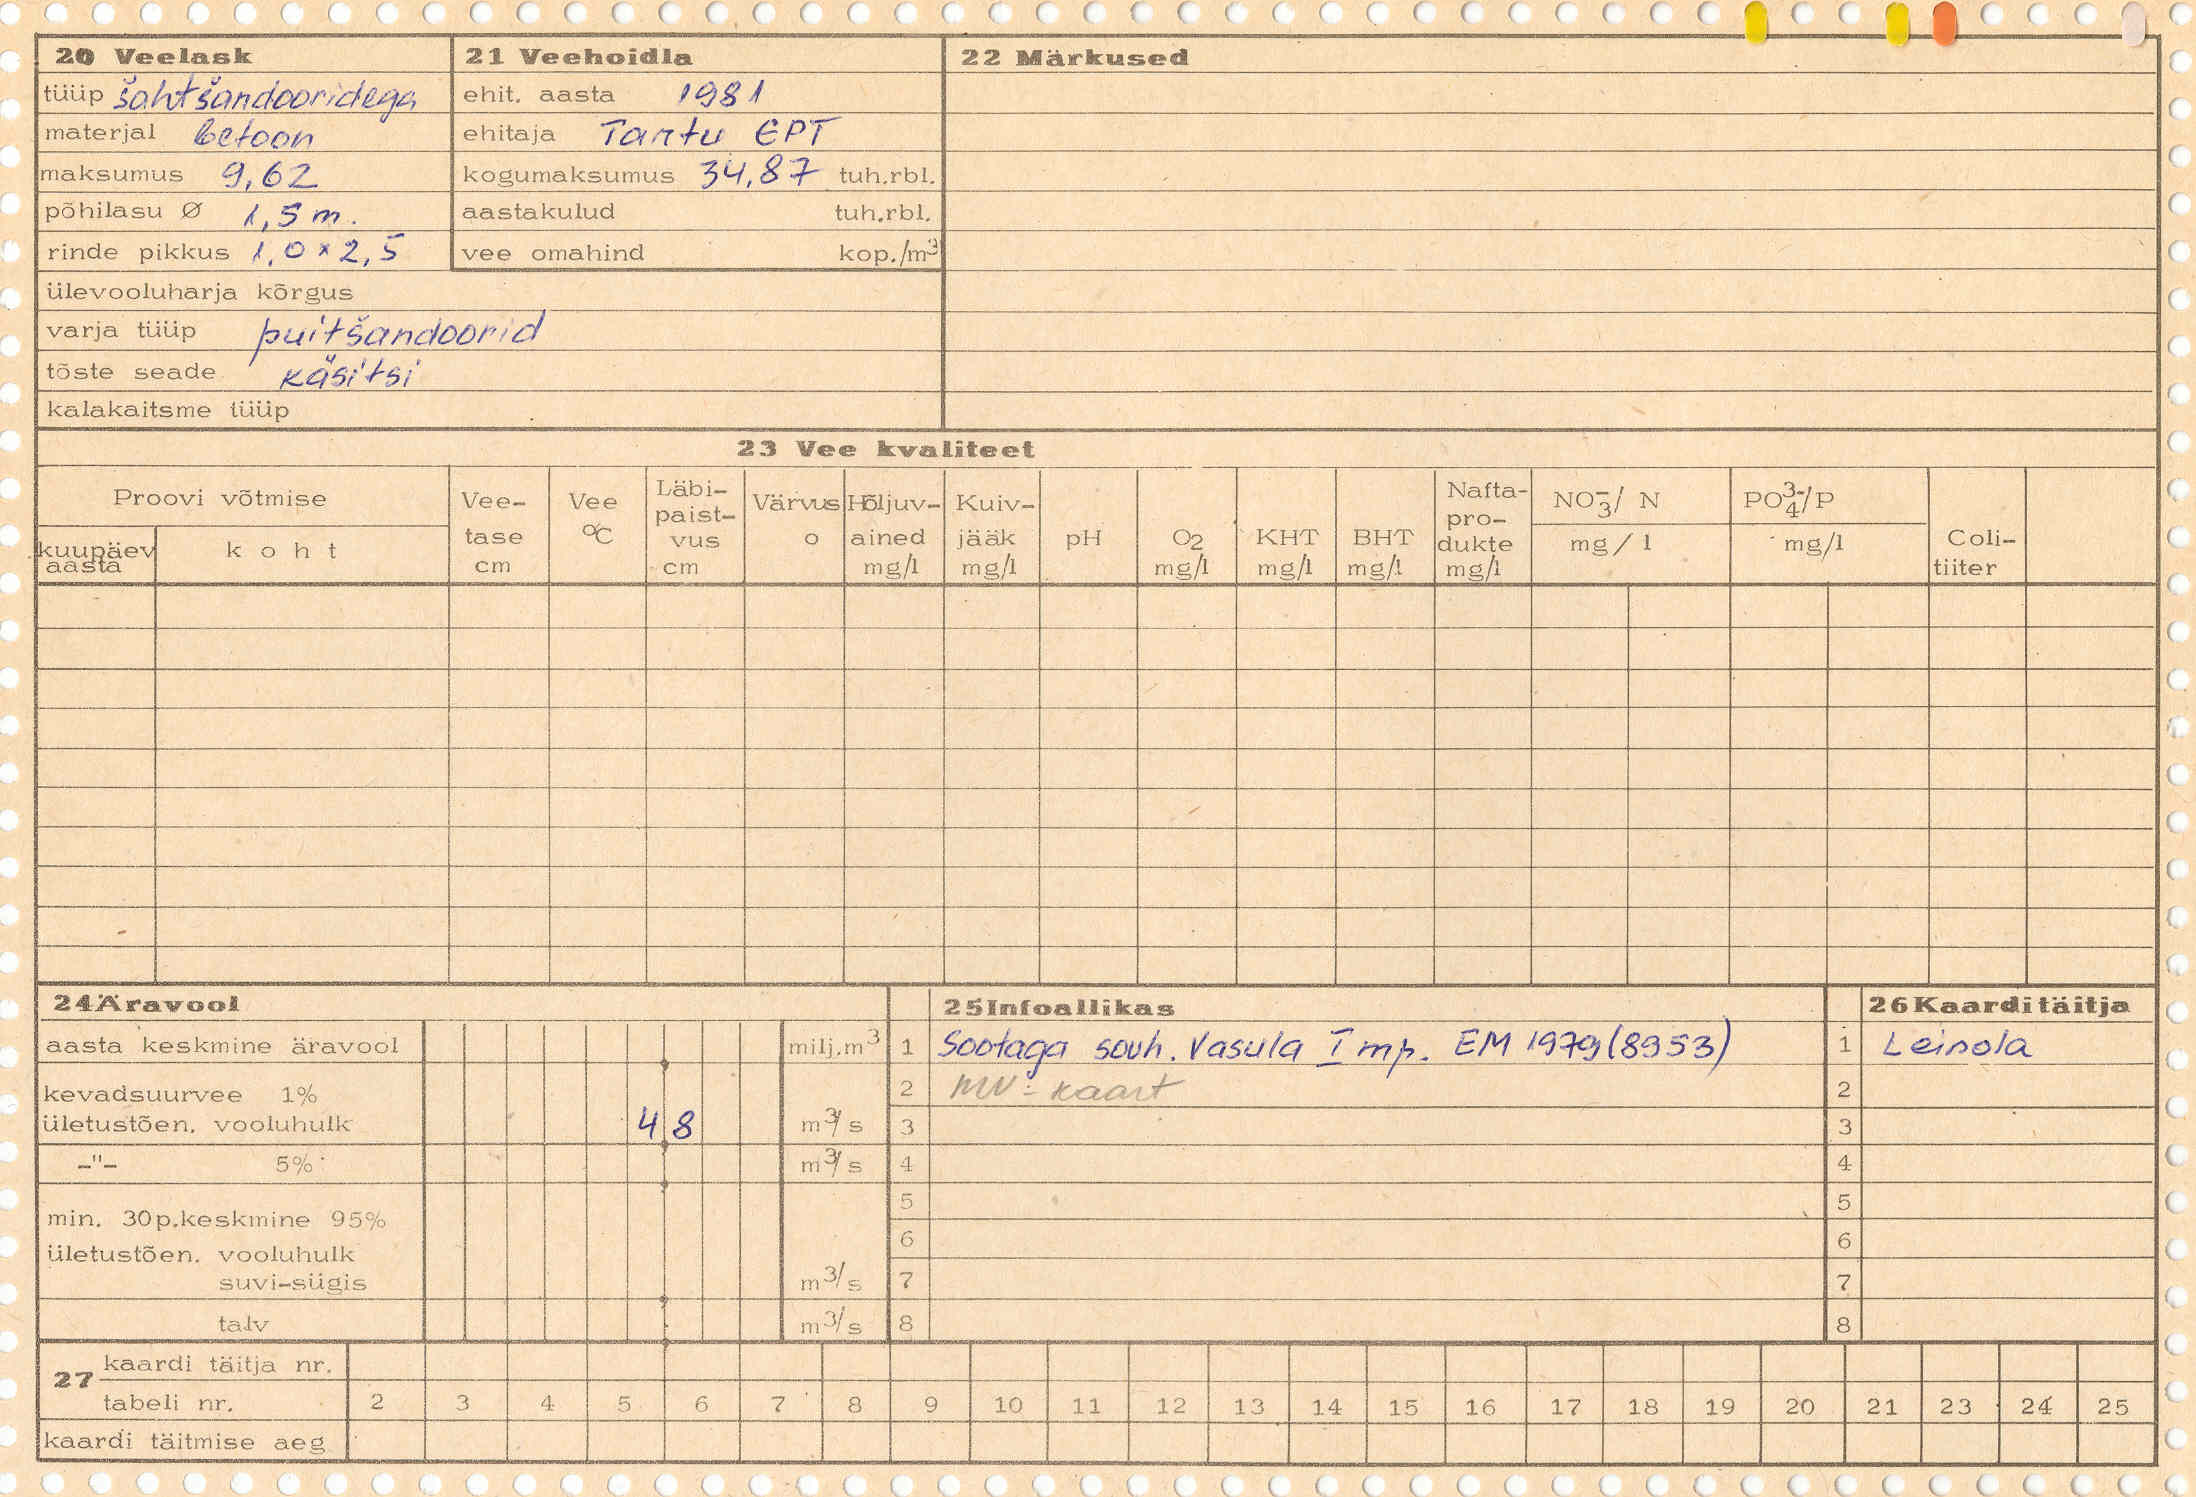 20 Veelask
tüüp šahtšandooridega
materjal betoon
maksumus 9,62
põhilasu Ø 1,5 m.
rinde pikkus 1,0 × 2,5
ülevooluharja kõrgus
varja tüüp puitšandoorid
tõste seade käsitsi
kalakaitsme tüüp
21 Veehoidla
ehit. aasta 1981
ehitaja Tartu EPT
kogumaksumus 34,87 tuh.rbl.
aastakulud tuh.rbl.
vee omahind kop./m³
22 Märkused
23 Vee kvaliteet
Proovi võtmise
kuupäev aasta
koht
Vee-
tase
cm
Vee
°C
Läbi-
paist-
vus
cm
Värvus
o
Hõljuv-
ained
mg/l
Kuiv-
jääk
mg/l
pH
O2
mg/l
KHT
mg/l
BHT
mg/l
Nafta-
pro-
dukte
mg/l
NO₃⁻/ N
mg/l
PO₄³⁻/P
mg/l
Coli-
tiiter
24 Äravool
aasta keskmine äravool milj.m³
kevadsuurvee 1%
ületustõen. vooluhulk 4 8 m³/s
-"- 5% m³/s
min. 30p.keskmine 95%
ületustõen. vooluhulk
suvi-sügis m³/s
talv m³/s
25 Infoallikas
1 Sootaga sovh. Vasula I mp. EM 1979 (8953)
2 MV - kaart
3
4
5
6
7
8
26 Kaarditäitja
1 Leinola
2
3
4
5
6
7
8
27 kaardi täitja nr.
tabeli nr. 2 3 4 5 6 7 8 9 10 11 12 13 14 15 16 17 18 19 20 21 23 24 25
kaardi täitmise aeg